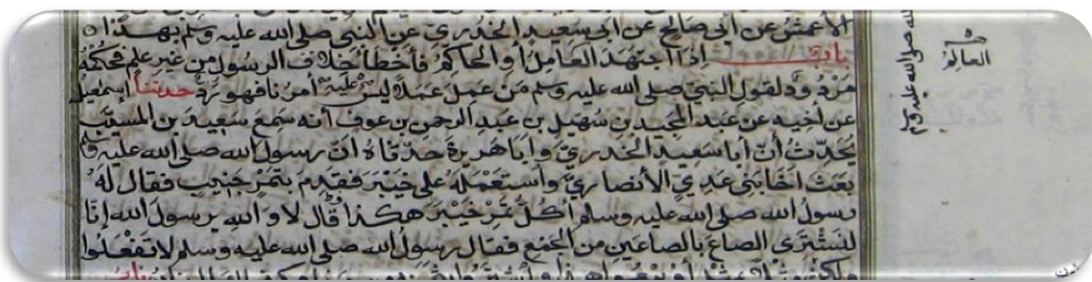 الأعمش عن أبى صالح عن أبى سعيد الخدري عن النبي صلى الله عليه وسلم بهذا
باب إذا اجتهد العامل أو الحاكم فأخطأ خلاف الرسول من غير علم فحكمه
مردود لقول النبي صلى الله عليه وسلم من عمل عملا ليس عليه أمرنا فهو رد حدثنا إسمعيل
عن أخيه عن عبد المجيد بن سهيل بن عبد الرحمن بن عوف أنه سمع سعيد بن المسيب
يحدث أن أبا سعيد الخدري وأبا هريرة حدثاه أن رسول الله صلى الله عليه وسلم
بعث أخا بني عدي الأنصاري واستعمله على خيبر فقدم بتمر جنيب فقال له
رسول الله صلى الله عليه وسلم أكل تمر خيبر هكذا قال لا والله يرسول الله إنا
لنشترى الصاع بالصاعين من الجمع فقال رسول الله صلى الله عليه وسلم لا تفعلوا
العالم
صلى الله عليه وسلم